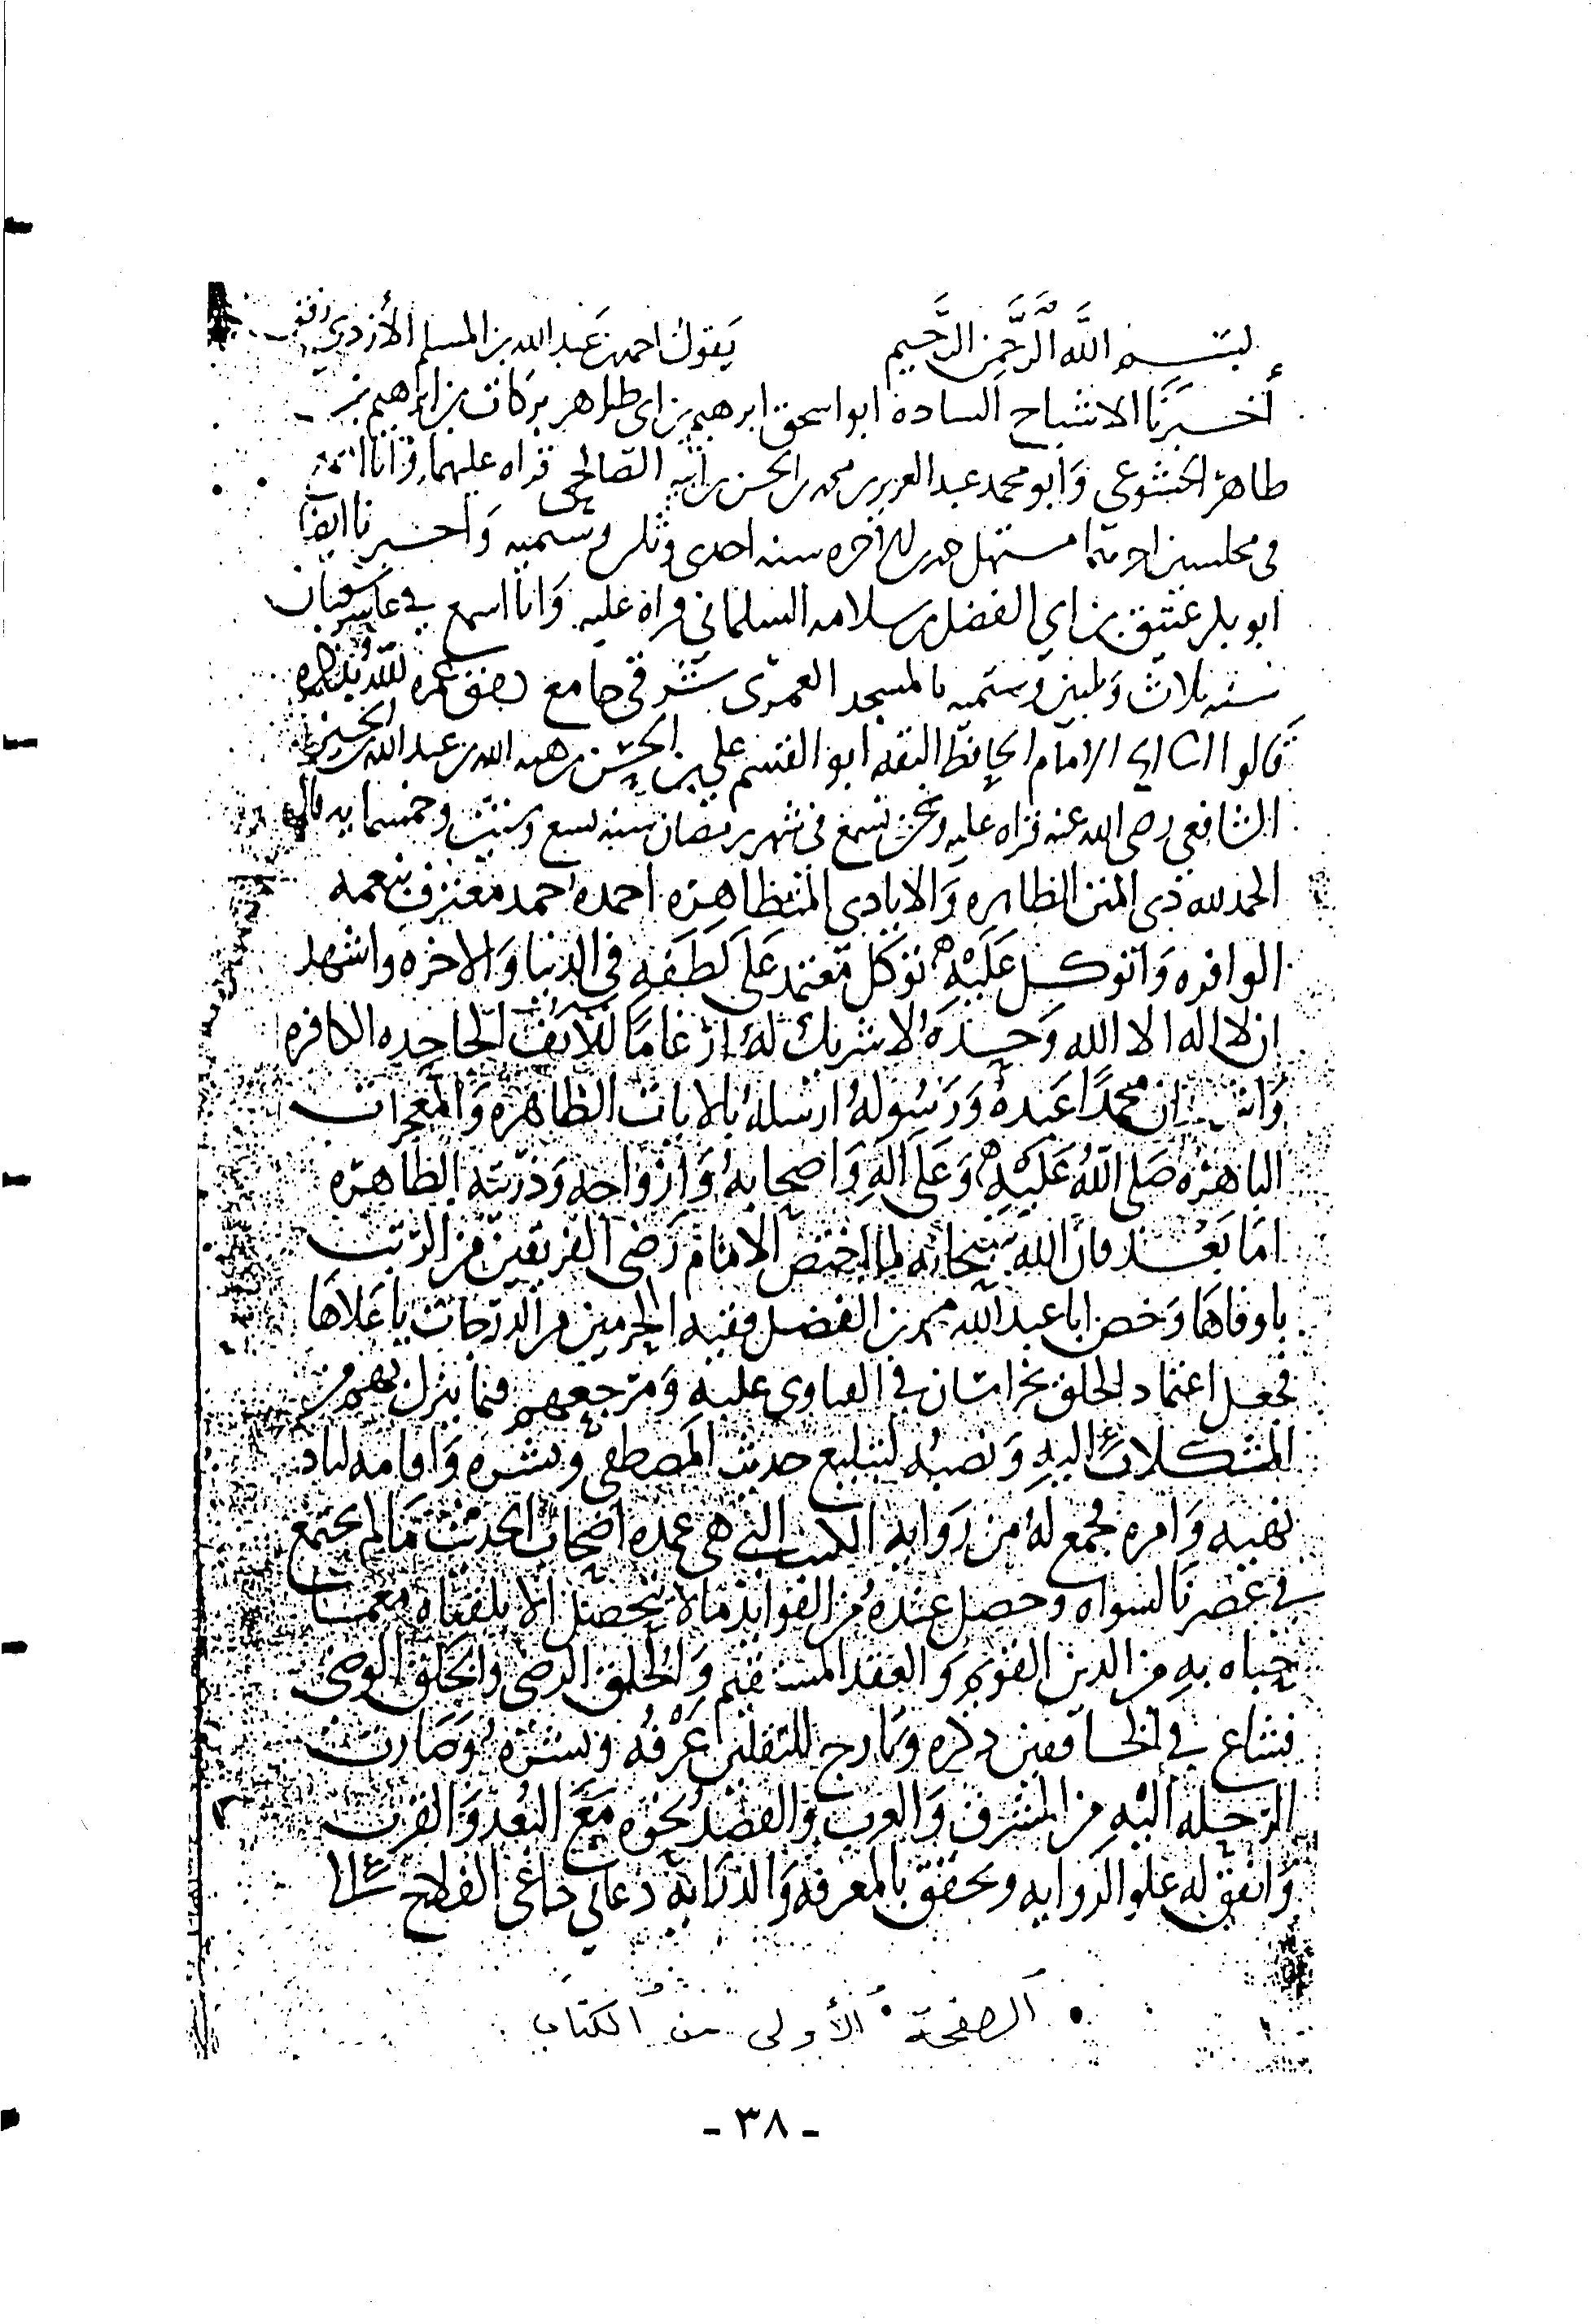 بسم الله الرحمن الرحيم يقول احمد بن عبد الله بن المسلم الأزدي
أخبرنا الاشياخ السادة ابو اسحق ابرهيم بن ابي طاهر بركات بن ابرهيم بن
طاهر الخشوعي وابو محمد عبد العزيز بن محمد بن الحسن بن ابيه الصالحي قراه عليهما وانا اسمع
في مجلسين اخرهما مستهل جمدى الاخره سنه احدى وثلثين وستميه واخبرنا ايضا
ابو بكر عتيق بن ابي الفضل بن سلامه السلماني قراه عليه وانا اسمع في عاشر شعبان
سنه ثلاث وثلثين وستميه بالمسجد العمري شرقي جامع دمشق عمره الله بذكره
قالوا انا الامام الحافظ الثقه ابو القسم علي بن الحسن بن هبه الله بن عبد الله بن الحسين
الشافعي رضي الله عنه قراه عليه ونحن نسمع في شهر رمضان سنه سبع وستين وخمسمايه قال
الحمد لله ذي المنن الظاهره والايادي المتظاهره احمده حمد معترف بنعمه
الوافره واتوكل عليه توكل معتمد على لطفه في الدنيا والاخره واشهد
ان لا اله الا الله وحده لا شريك له ارغاما للانف الجاحده الكافره
وان محمدا عبده ورسوله ارسله بالايات الظاهره والمعجزات
الباهره صلى الله عليه وعلى اله واصحابه وازواجه وذريته الطاهره
اما بعد فان الله سبحانه لما اختص الامام رضى الفريقين من الرتب
باوفاها وخص ابا عبد الله محمد بن الفضل فقيه الحرمين من الدرجات باعلاها
فجعل اعتماد الخلق بخراسان في الفتاوى عليه ومرجعهم فيما ينزل بهم من
المشكلات اليه ونصبه لتبليغ حديث المصطفى ونشره واقامه لبيان
نهيه وامره فجمع له من روايه الكتب التي هي عمده اصحاب الحديث ما لم يجتمع
في عصرنا لسواه وحصل عنده من الفوائد ما لا يتحصل الا بلقياه مع ما
حباه به من الدين القويم والعقد المستقيم والخلق الرضي والخلق الوضي
فشاع في الخافقين ذكره وتارج للثقلين عرفه ونشره وصارت
الرحله اليه من المشرق والغرب والقصد نحوه مع البعد والقرب
واتفق له علو الروايه وتحقق بالمعرفه والدرايه دعاني داعي الفلاح
• الصفحة الأولى من الكتاب
- ٣٨ -